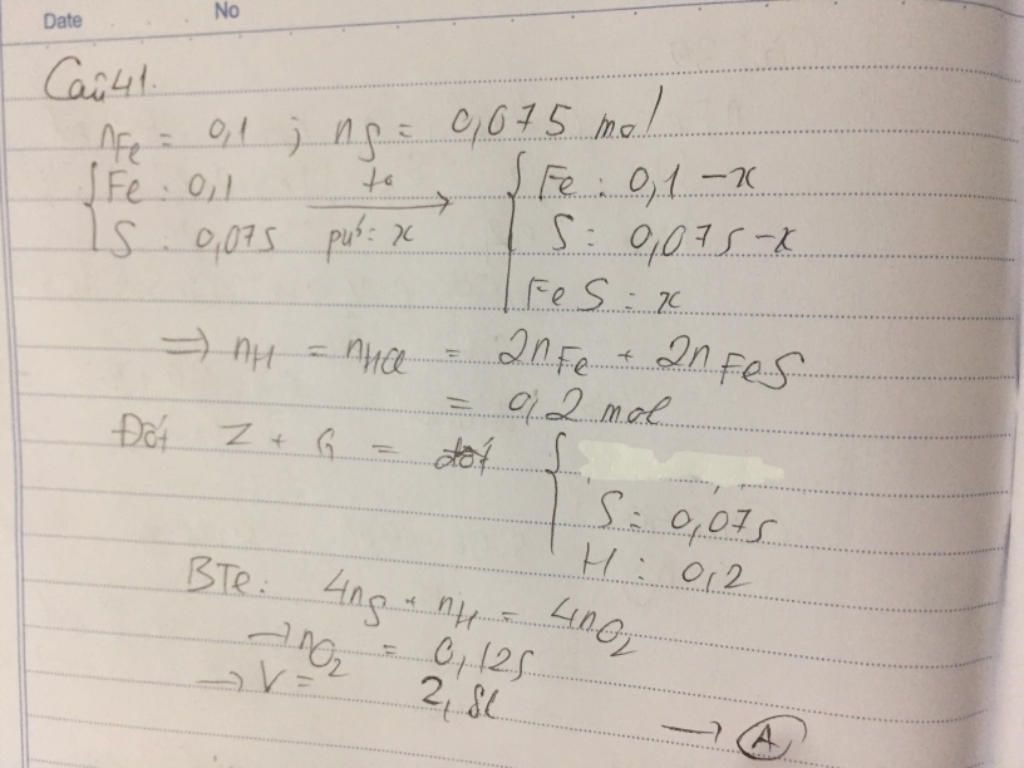 Date No
Câu 41.
nFe = 0,1 ; nS = 0,075 mol
{ Fe : 0,1 t° → { Fe : 0,1 - x
S : 0,075 pư: x S : 0,075 - x
FeS : x
⇒ nH = nHCl = 2nFe + 2nFeS
= 0,2 mol
Đốt Z + G = đốt {
S : 0,075
H : 0,2
BTe: 4nS + nH = 4nO2
→ nO2 = 0,125
→ V = 2,8l
→ A